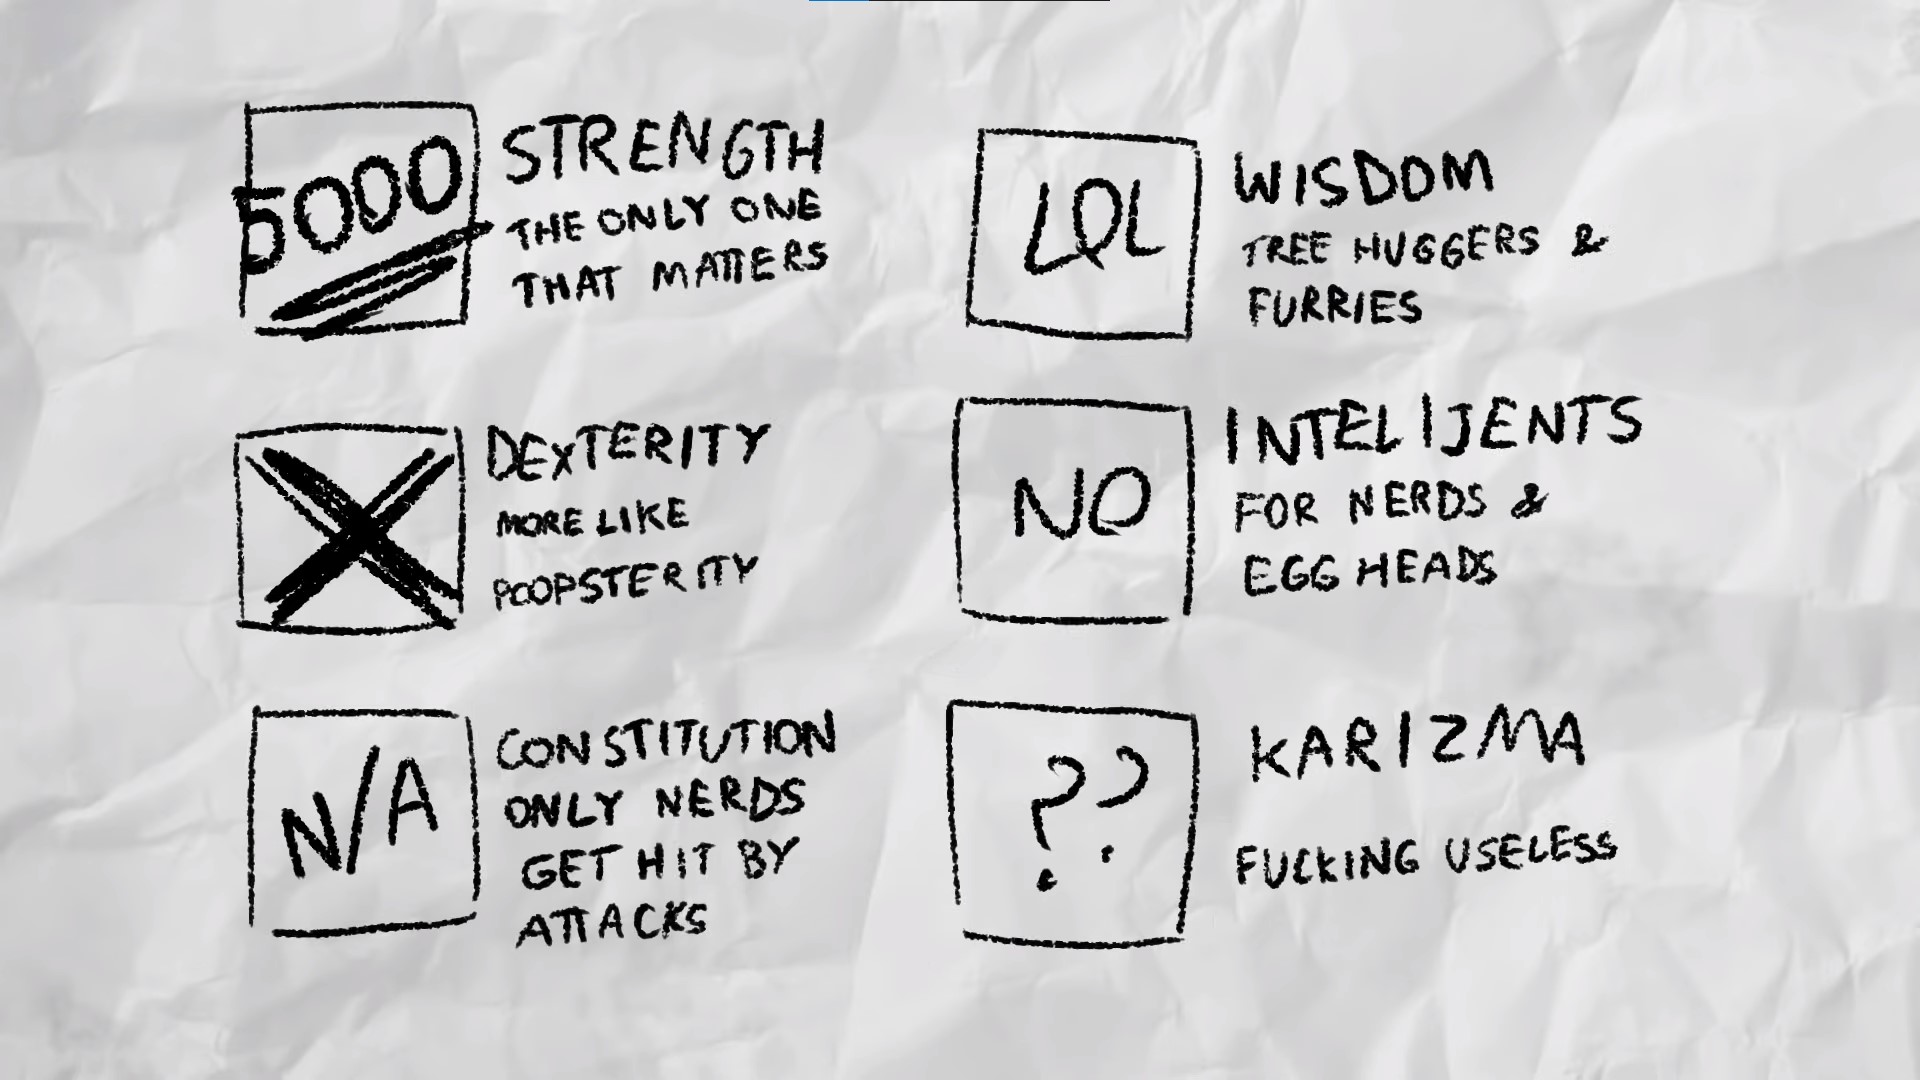 5000
STRENGTH
THE ONLY ONE
THAT MATTERS
DEXTERITY
MORE LIKE
POOPSTERITY
N/A
CONSTITUTION
ONLY NERDS
GET HIT BY
ATTACKS
LOL
WISDOM
TREE HUGGERS &
FURRIES
NO
INTELIJENTS
FOR NERDS &
EGG HEADS
??
KARIZMA
FUCKING USELESS